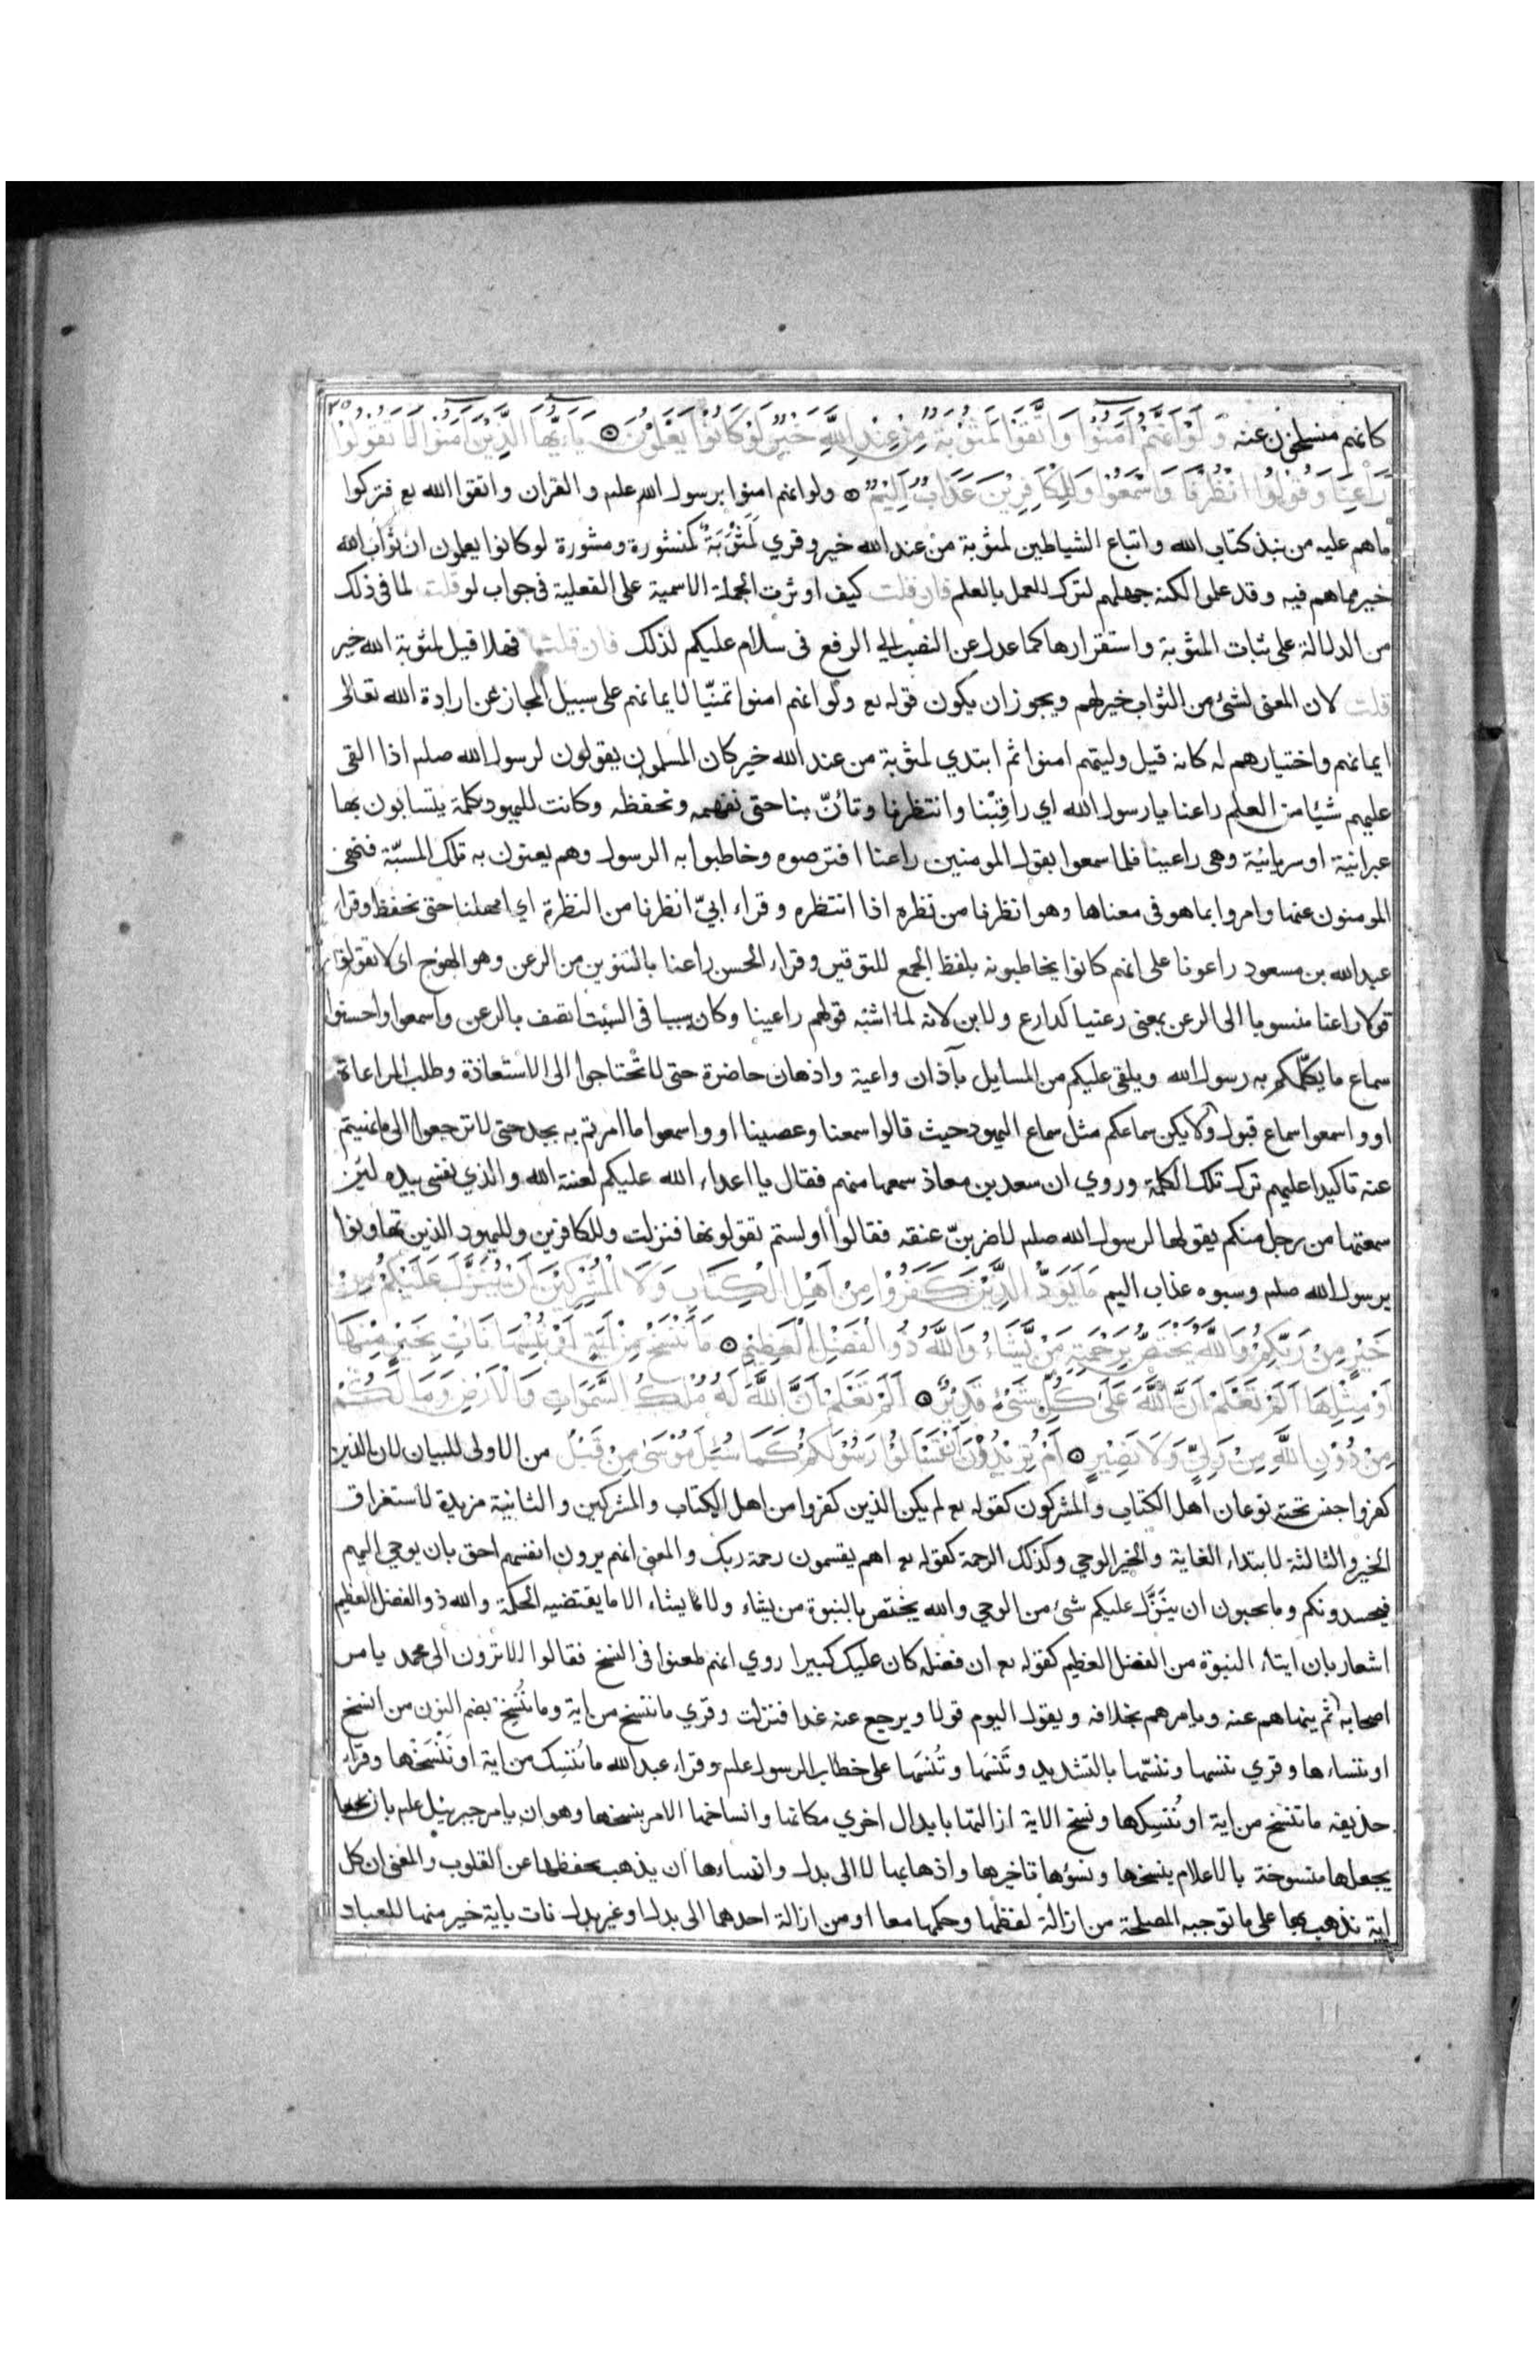 كانهم منسلخون عنه وَلَوْ اَنَّهُمْ اٰمَنُوْا وَاتَّقَوْا لَمَثُوْبَةٌ مِنْ عِنْدِ اللّٰهِ خَيْرٌ لَوْ كَانُوْا يَعْلَمُوْنَ يَا اَيُّهَا الَّذِيْنَ اٰمَنُوْا لَا تَقُوْلُوْا ٢٥
رَاعِنَا وَقُوْلُوا انْظُرْنَا وَاسْمَعُوْا وَلِلْكَافِرِيْنَ عَذَابٌ اَلِيْمٌ ولو انهم امنوا برسول الله علم والقران واتقوا الله تع فتركوا
ما هم عليه من نبذ كتاب الله واتباع الشياطين لمثوبة من عند الله خير وقري لَمَثْوَبَةٌ كمنشورة ومشورة لو كانوا يعلمون ان ثواب الله
خير مما هم فيه وقد علموا لكنه جهلهم لترك العمل بالعلم فان قلت كيف اوثرت الجملة الاسمية على الفعلية في جواب لو قلت لما في ذلك
من الدلالة على ثبات المثوبة واستقرارها كما عدل عن النصب الي الرفع في سلام عليكم لذلك فان قلت فهلا قيل لمثوبة الله خير
قلت لان المعنى لشئ من الثواب خير لهم ويجوز ان يكون قوله تع ولو انهم امنوا تمنيّا لايمانهم على سبيل المجاز عن ارادة الله تعالى
ايمانهم واختيارهم له كانه قيل وليتهم امنوا ثم ابتدي لمثوبة من عند الله خير كان المسلمون يقولون لرسول الله صلم اذا القى
عليهم شيئا من العلم راعنا يارسول الله اي راقِبْنا وانتظرنا وتأنّ بنا حتى نفهمه ونحفظه وكانت لليهود كلمة يتسابون بها
عبرانية او سريانية وهى راعينا فلما سمعوا بقول المومنين راعنا افترصوه وخاطبوا به الرسول وهم يعنون به تلك المسبّة فنهى
المومنون عنها وامروا بما هو في معناها وهو انظرنا من نظره اذا انتظره وقراء ابيّ انظرنا من النظرة اي امهلنا حتى نحفظ وقراء
عبد الله بن مسعود راعونا على انهم كانوا يخاطبونه بلفظ الجمع للتوقير وقراء الحسن راعنا بالتنوين من الرعن وهو الهوج اى لا تقولوا
قولا راعنا منسوبا الى الرعن بمعنى رعنيا كدارع ولابن لانه لما اشبه قولهم راعينا وكان سببا في السبت اتصف بالرعن واسمعوا واحسنوا
سماع ما يكلّمكم به رسول الله ويلقى عليكم من المسايل بآذان واعية واذهان حاضرة حتى لا تحتاجوا الى الاستعاذة وطلب المراعاة
او واسمعوا سماع قبول ولا يكن سماعكم مثل سماع اليهود حيث قالوا سمعنا وعصينا او واسمعوا ما امرتم به بجد حتى لا ترجعوا الى ما نهيتم
عنه تاكيدا عليهم ترك تلك الكلمة وروي ان سعد بن معاذ سمعها منهم فقال يا اعداء الله عليكم لعنة الله والذي نفسى بيده لئن
سمعتها من رجل منكم يقولها لرسول الله صلم لاضربنّ عنقه فقالوا اولستم تقولونها فنزلت وللكافرين ولليهود الذين تهاونوا
برسول الله صلم وسبوه عذاب اليم مَا يَوَدُّ الَّذِيْنَ كَفَرُوْا مِنْ اَهْلِ الْكِتَابِ وَلَا الْمُشْرِكِيْنَ اَنْ يُنَزَّلَ عَلَيْكُمْ مِنْ
خَيْرٍ مِنْ رَبِّكُمْ وَاللّٰهُ يَخْتَصُّ بِرَحْمَتِهٖ مَنْ يَّشَاءُ وَاللّٰهُ ذُو الْفَضْلِ الْعَظِيْمِ مَا نَنْسَخْ مِنْ اٰيَةٍ اَوْ نُنْسِهَا نَاْتِ بِخَيْرٍ مِنْهَا
اَوْ مِثْلِهَا اَلَمْ تَعْلَمْ اَنَّ اللّٰهَ عَلٰى كُلِّ شَيْءٍ قَدِيْرٌ اَلَمْ تَعْلَمْ اَنَّ اللّٰهَ لَهُ مُلْكُ السَّمٰوَاتِ وَالْاَرْضِ وَمَا لَكُمْ
مِنْ دُوْنِ اللّٰهِ مِنْ وَلِيٍّ وَلَا نَصِيْرٍ اَمْ تُرِيْدُوْنَ اَنْ تَسْاَلُوْا رَسُوْلَكُمْ كَمَا سُئِلَ مُوْسٰى مِنْ قَبْلُ من الاولى للبيان لان الذين
كفروا جنس تحته نوعان اهل الكتاب والمشركون كقوله تع لم يكن الذين كفروا من اهل الكتاب والمشركين والثانية مزيدة لاستغراق
الخير والثالثة لابتداء الغاية والخير الوحي وكذلك الرحمة كقوله تع اهم يقسمون رحمة ربك والمعنى انهم يرون انفسهم احق بان يوحي اليهم
فيحسدونكم وما يحبون ان ينزّل عليكم شئ من الوحي والله يختص بالنبوة من يشاء ولا يشاء الا ما يقتضيه الحكمة والله ذو الفضل العظيم
اشعار بان ايتاء النبوة من الفضل العظيم كقوله تع ان فضله كان عليك كبيرا روي انهم طعنوا في النسخ فقالوا الا ترون الى محمد يامر
اصحابه ثم ينهاهم عنه ويامرهم بخلافه ويقول اليوم قولا ويرجع عنه غدا فنزلت وقري ما ننسخ من اية وما نُنسِخ بضم النون من انسخ
او ننساءها وقري ننسها وننسّها بالتشديد وتَنسَها وتُنسَها على خطاب الرسول علم وقراء عبد الله ما نُنسِك من اية او نَنْسَخْها وقراء
حذيفه ما ننسخ من اية او نُنسِكها ونسخ الاية ازالتها بابدال اخري مكانها وانساخها الامر بنسخها وهو ان يامر جبرئيل علم بان
يجعلها منسوخة بالاعلام بنسخها ونسؤها تاخيرها واذهابها لا الى بدل وانساءها ان يذهب بحفظها عن القلوب والمعنى ان كل
اية نذهب بها على ما توجبه المصلحة من ازالة لفظها وحكمها معا او من ازالة احدهما الى بدل او غير بدل نات باية خير منها للعباد